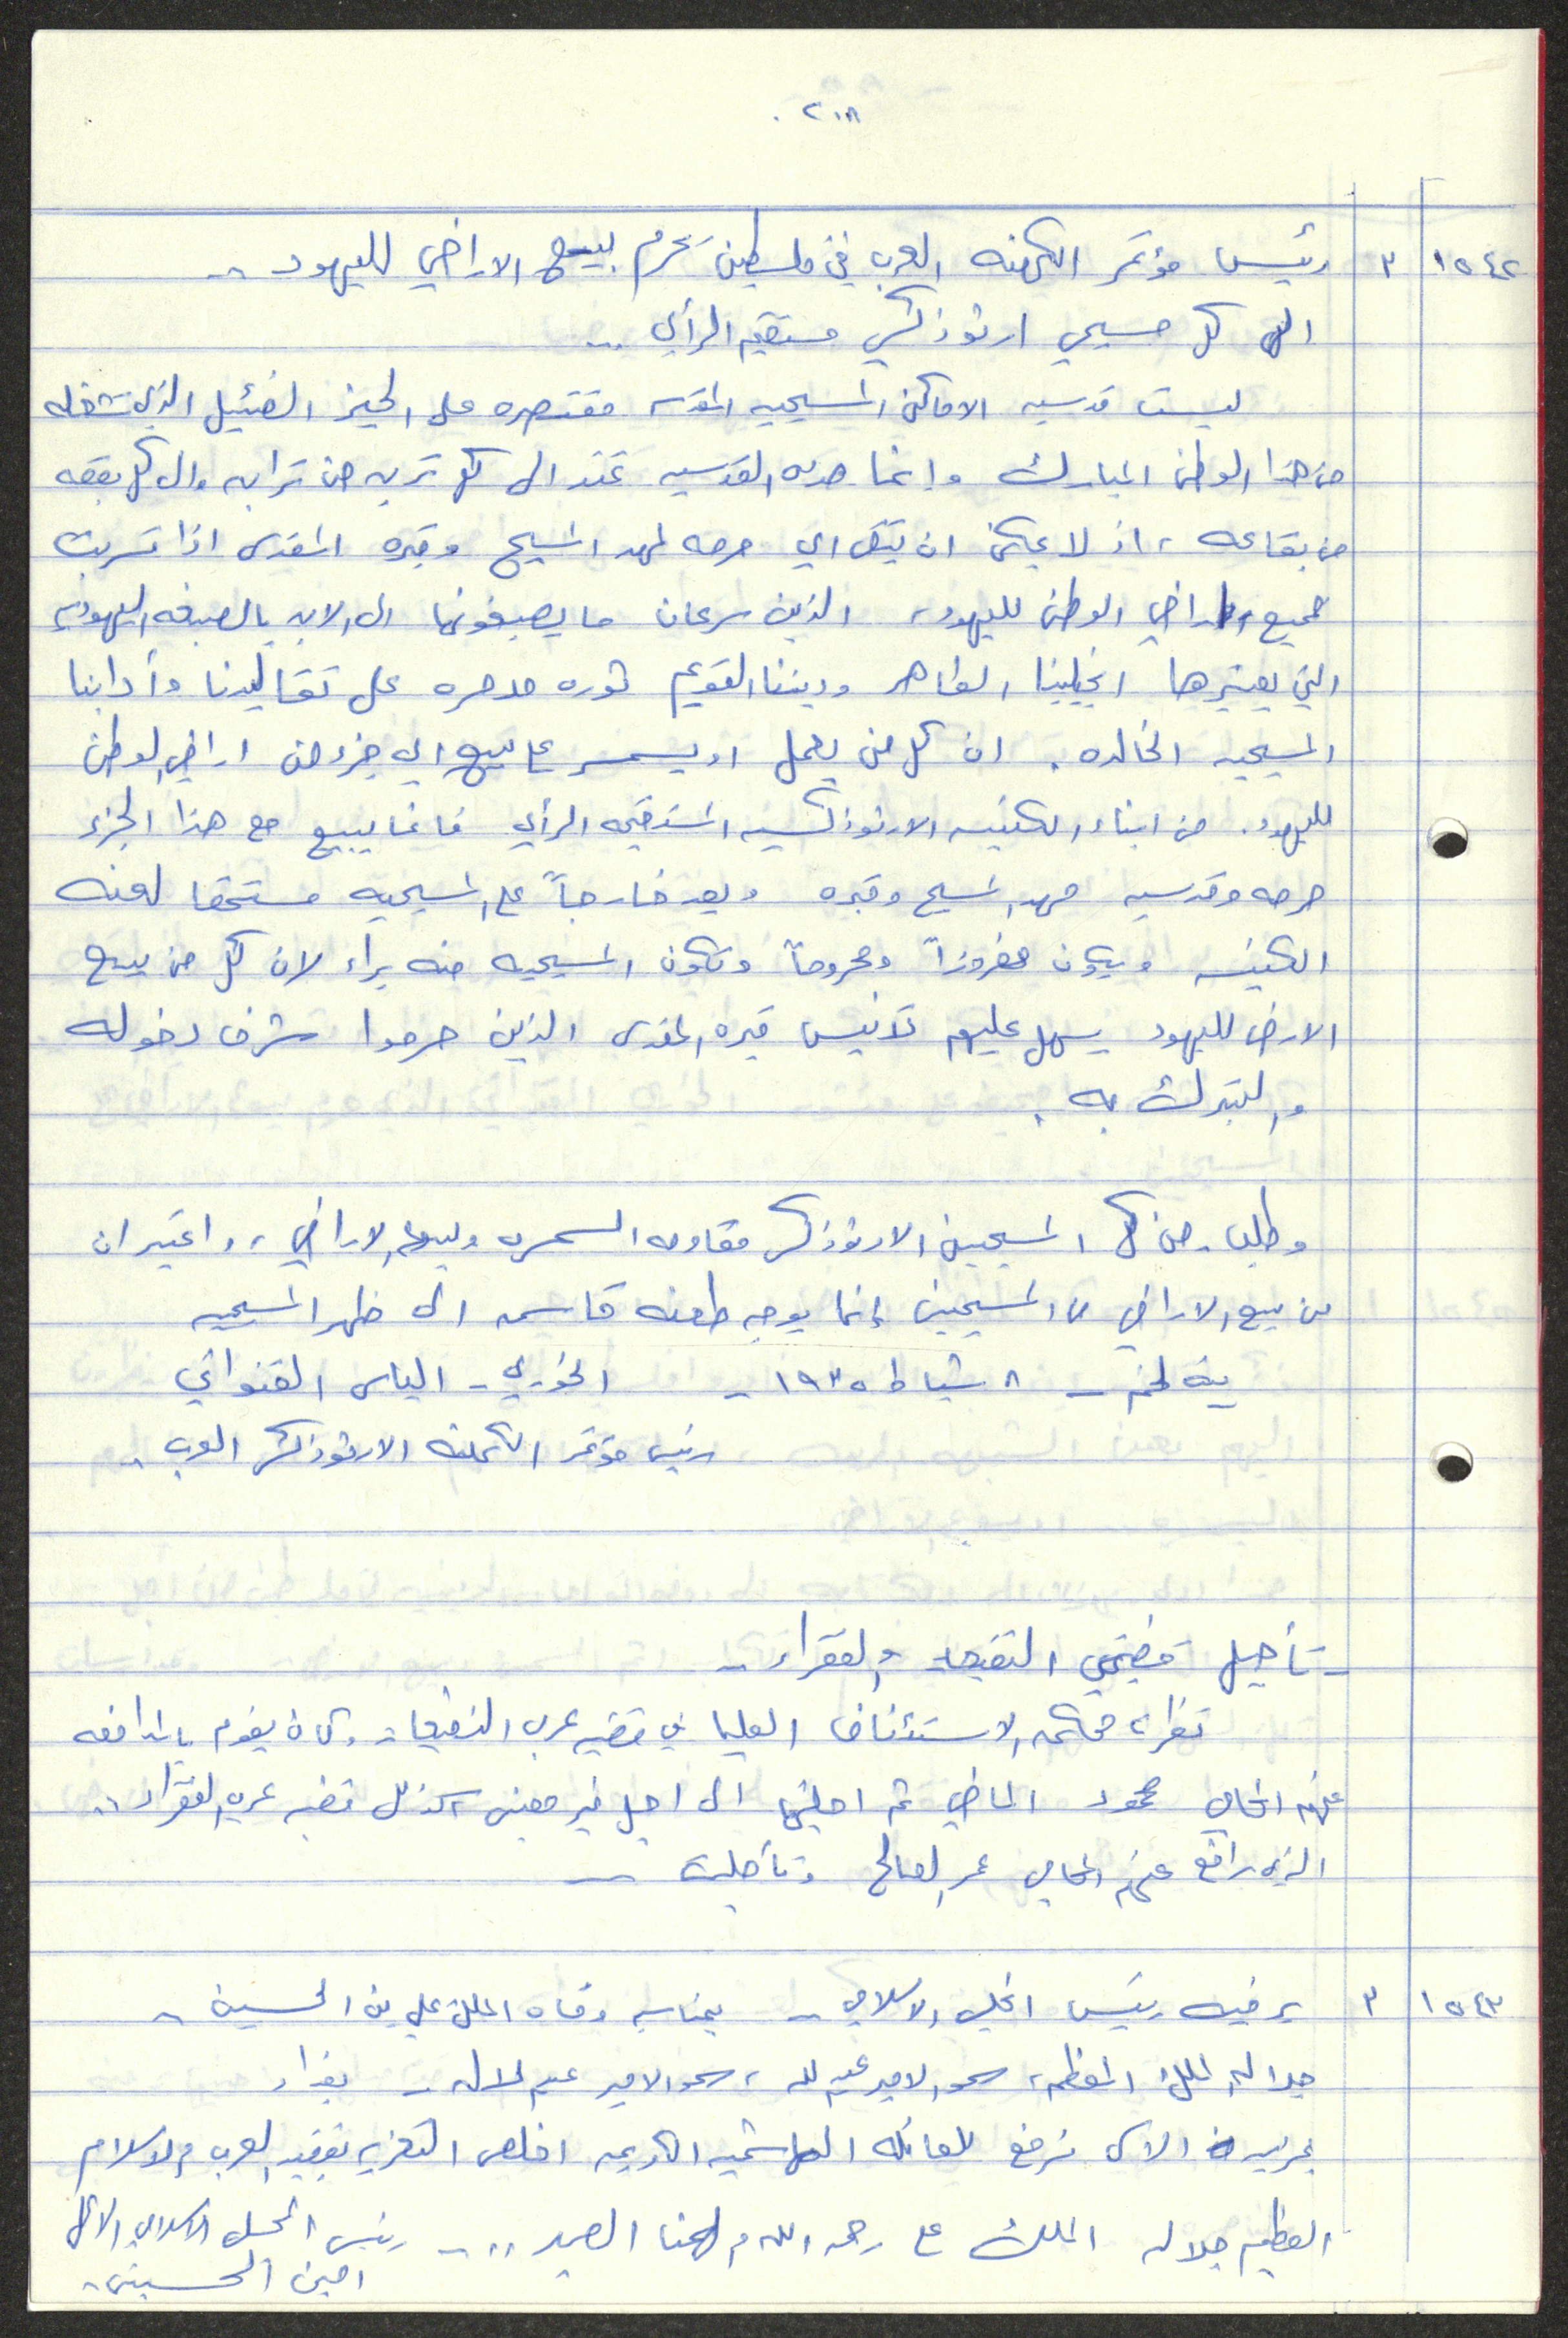 ٢٠٨ .
١٥٤٢ ٣ رئيس مؤتمر الكهنه العرب في فلسطين يحرم بيع الاراضي لليهود ..
الى كل مسيحي ارثوذكسي مستقيم الرأي ..
ليست قدسيه الاماكن المسيحيه المقدسه مقتصره على الحيز الضئيل الذي تشغله
من هذا الوطن المبارك وإنما هذه القدسيه تمتد الى كل تربه من ترابه والى كل بقعه
من بقاعه ، اذ لا يمكن ان يبقى اي حرمه لمهد المسيح وقبره المقدس اذا تسربت
جميع اراضي الوطن لليهود ، الذين سرعان ما يصبغونها الى الابد بالصبغه اليهوديه
التي يعتبرها انجيلنا الطاهر وديننا القويم ثوره مدمره على تقاليدنا وآدابنا
المسيحيه الخالده . ان كل من يعمل او يسمسر على بيع اي جزء من اراضي الوطن
لليهود . من ابناء الكنيسه الارثوذكسيه المستقيمه الرأي فانما يبيع مع هذا الجزء
حرمه وقدسيه مهد المسيح وقبره ويعد خارجاً على المسيحيه مستحقا لعنه
الكنيسه ويكون مفروزاً ومحروماً وتكون المسيحيه منه براء لان كل من يبيع
الارض لليهود يسهل عليهم تدنيس قبره المقدس الذين حرموا شرف دخوله
والتبرك به .
وطلب من كل المسيحيين الارثوذكس مقاومه السمسره وبيع الاراضي ، واعتبر ان
من يبيع الاراضي من المسيحيين إنما يوجه طعنه قاسيه الى ظهر المسيحيه
بيت لحم - ٨ شباط ١٩٣٥ - الخوري - الياس القنواتي
رئيس مؤتمر الكهنه الارثوذكس العرب .
- تأجيل قضيتي النفيعات والفقراء -
نظرت محكمه الاستئناف العليا في قضيه عرب النفيعات وكان يقوم بالمدافعه
عنهم المحامي محمود الماضي ثم اجلتها الى اجل غير معين كذلك قضيه عرب الفقراء ..
الذي رافع عنهم المحامي عمر الصالح وتأجلت -
١٥٤٣ ٣ برقيه رئيس المجلس الاسلامي - بمناسبه وفاه الملك علي بن الحسين -
جلاله الملك المعظم ، سمو الامير عبد الله ، سمو الامير عبد الاله - بغداد
بمزيد الاسى نرفع للعائله الهاشميه الكريمه اخلص التعزيه بفقيد العرب والاسلام
العظيم جلاله الملك علي رحمه الله والهمنا الصبر .. - رئيس المجلس الاسلامي الاعلى
امين الحسيني -